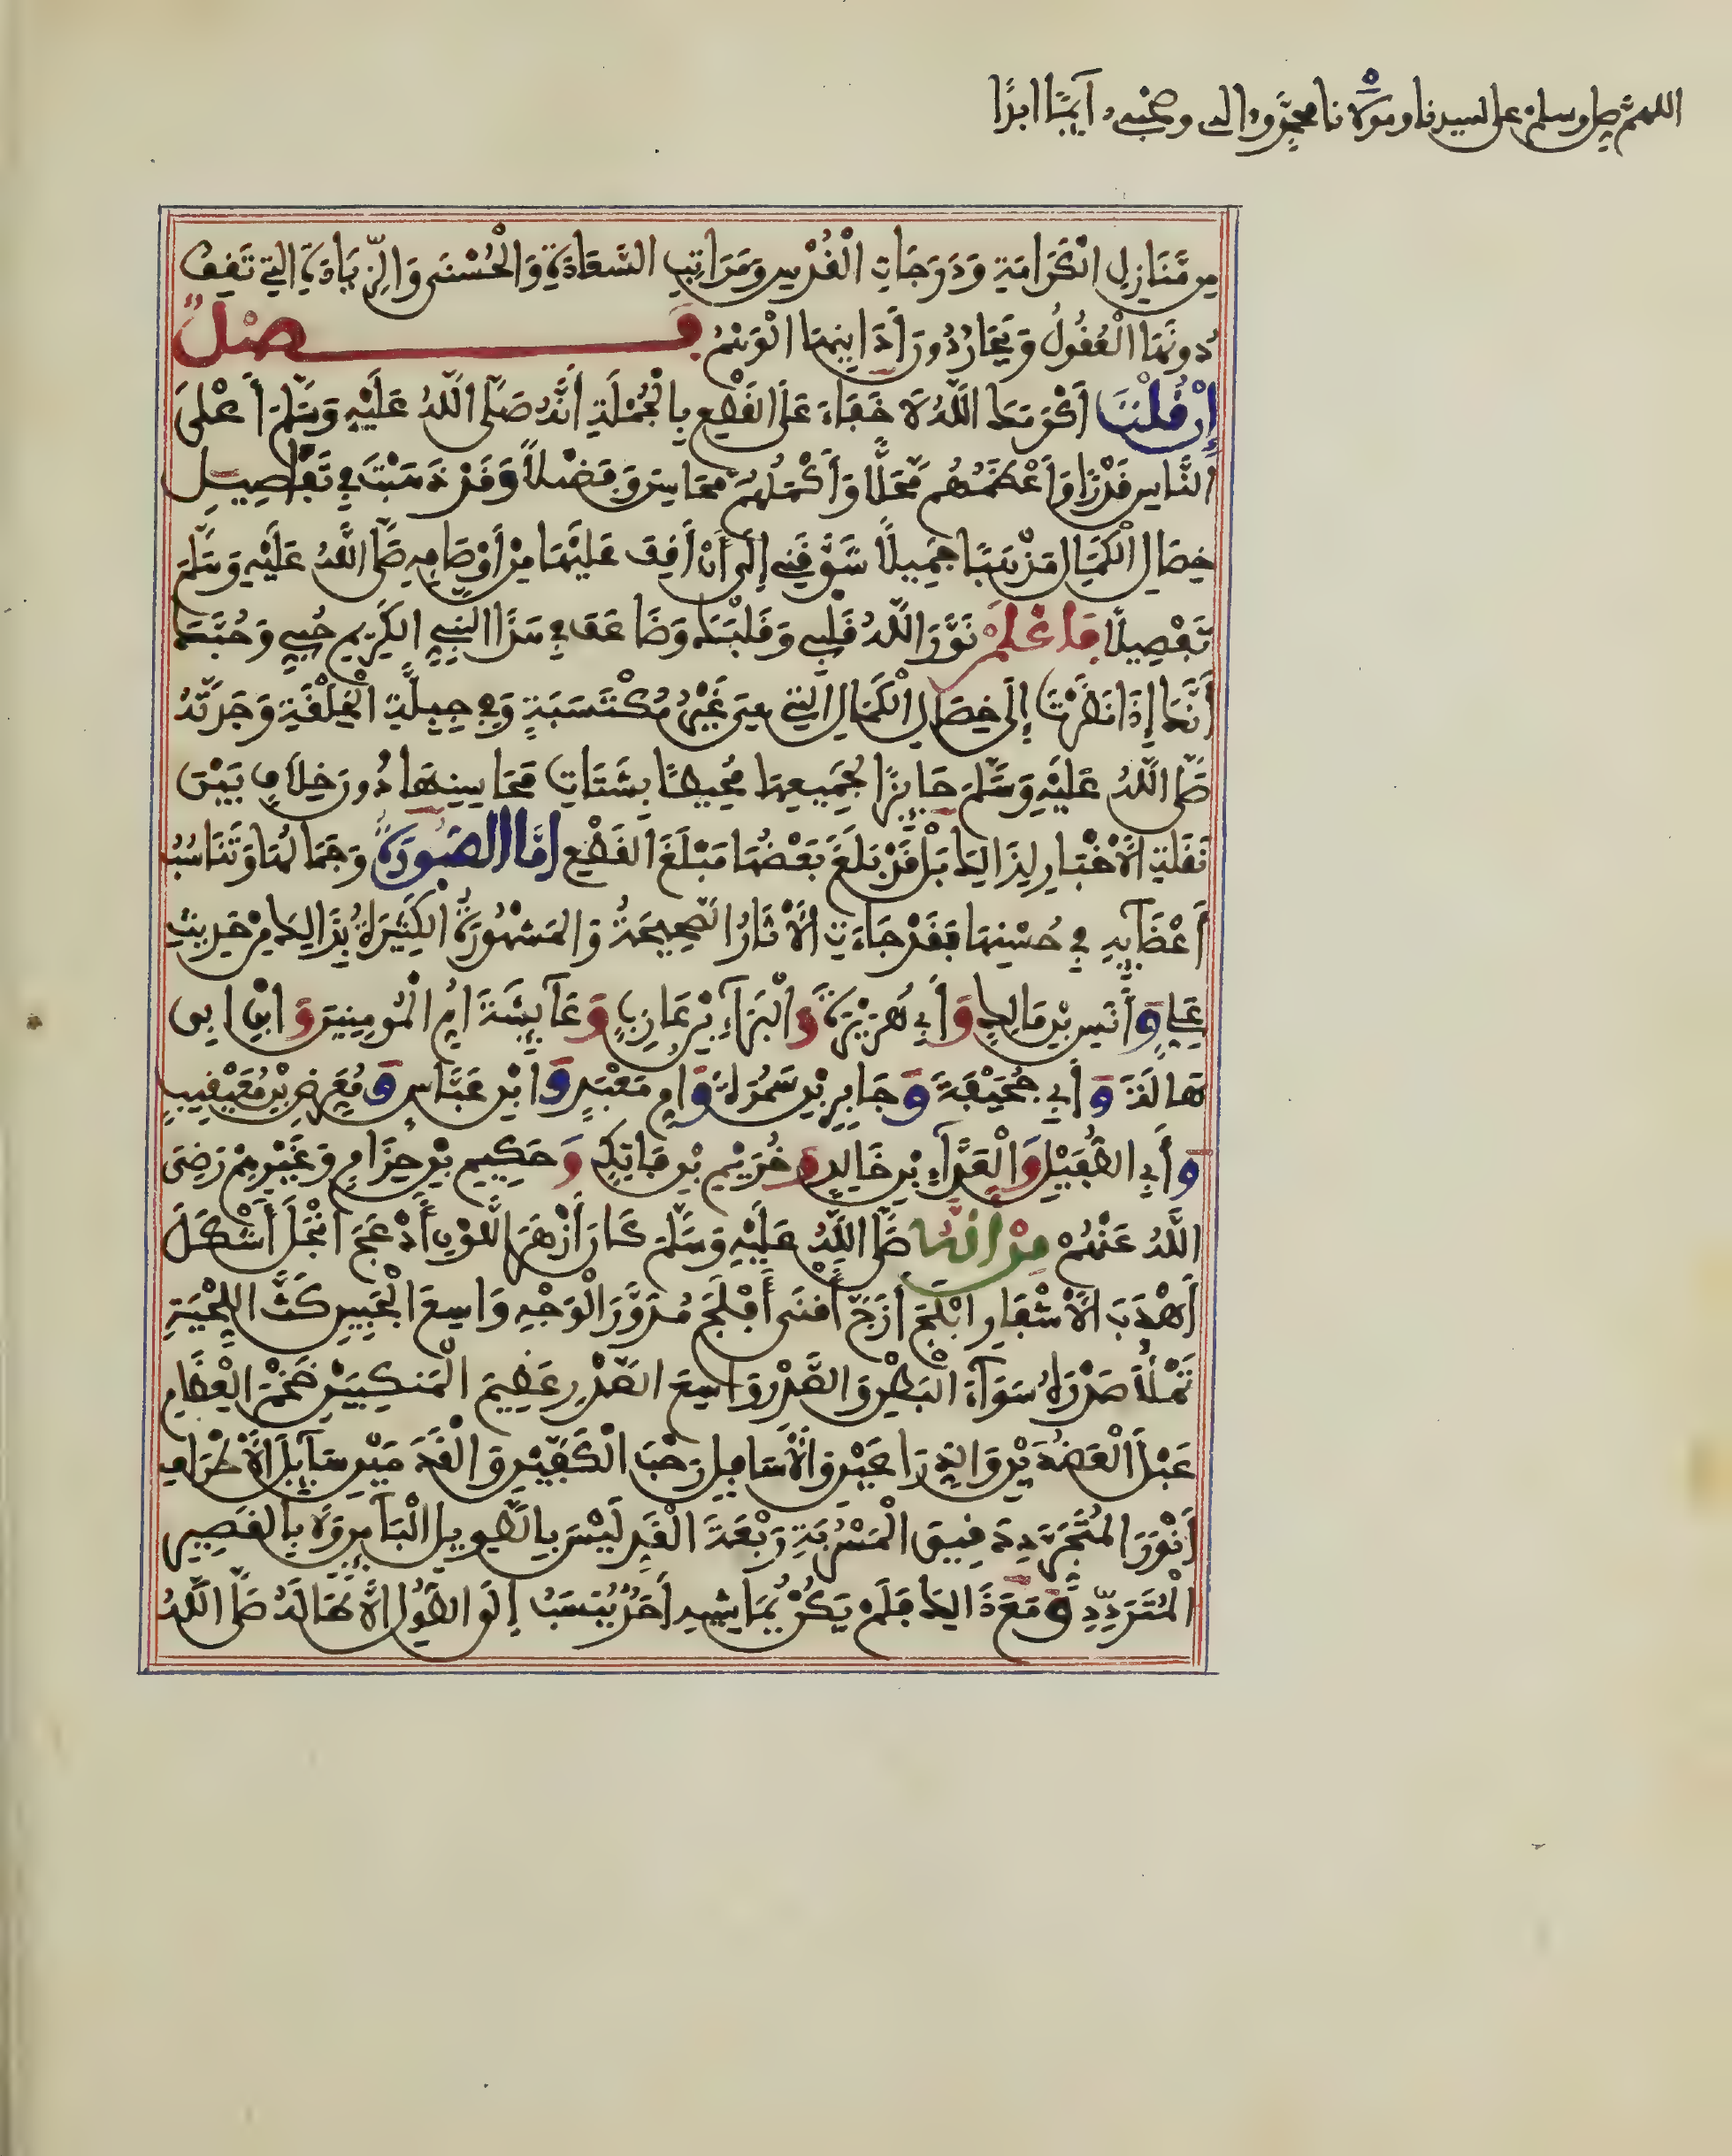 اللهم صل وسلم على سيدنا ومولانا محمد واله وصحبه ابدا
مِن مَّنَازِلِ الْكَرَامَةِ وَدَرَجَاتِ الْقُدْسِ وَمَرَاتِبِ السَّعَادَةِ وَالْحُسْنَى وَالزِّيَادَةِ التِي تَقِفُ
دُونَهَا الْعُقُولُ وَيَحَارُ دُونَ أَدَانِيهَا الْوَهْمُ فَصْلٌ
إِنْ قُلْتَ أَكْرَمَكَ اللَّهُ لَا خَفَاءَ عَلَى الْقَطْعِ بِالْجُمْلَةِ أَنَّهُ صَلَّى اللَّهُ عَلَيْهِ وَسَلَّمَ أَعْلَى
النَّاسِ قَدْرًا وَأَعْظَمُهُم مَّحَلًّا وَأَكْمَلُهُمْ مَحَاسِنَ وَفَضْلًا وَقَدْ ذَهَبْتَ فِي تَفَاصِيلِ
خِصَالِ الْكَمَالِ مَذْهَبًا جَمِيلًا شَوَّقَنِي إِلَى أَنْ أَقِفَ عَلَيْهَا مِنْ أَوْصَافِهِ صَلَّى اللَّهُ عَلَيْهِ وَسَلَّمَ
تَفْصِيلًا فَاعْلَمْ نَوَّرَ اللَّهُ قَلْبِي وَقَلْبَكَ وَضَاعَفَ فِي هَذَا النَّبِيِّ الكَرِيمِ حُبِّي وَحُبَّكَ
أَنَّكَ إِذَا نَظَرْتَ إِلَى خِصَالِ الْكَمَالِ التِي هِيَ غَيْرُ مُكْتَسَبَةٍ وَفِي جِبِلَّةِ الْخِلْقَةِ وَجَدتَّهُ
صَلَّى اللَّهُ عَلَيْهِ وَسَلَّمَ حَايِزًا لِجَمِيعِهَا مُحِيطًا بِشَتَاتِ مَحَاسِنِهَا دُونَ خِلَافٍ بَيْنَ
نَقَلَةِ الْأَخْبَارِ لِذَالِكَ بَلْ قَدْ بَلَغَ بَعْضُهَا مَبْلَغَ الْقَطْعِ أَمَّا الصُّورَةُ وَجَمَالُهَا وَتَنَاسُبُ
أَعْضَائِهِ فِي حُسْنِهَا فَقَدْ جَاءَتِ الْأَثَارُ الصَّحِيحَةُ وَالْمَشْهُورَةُ الْكَثِيرَةُ بِذَالِكَ مِنْ حَدِيثِ
عَلِيٍّ وَأَنَسِ بْنِ مَالِكٍ وَأَبِي هُرَيْرَةَ وَالْبَرَاءِ بْنِ عَازِبٍ وَعَائِشَةَ أُمِّ الْمُومِنِينَ وَابْنِ أَبِي
هَالَةَ وَأَبِي جُحَيْفَةَ وَجَابِرِ بْنِ سَمُرَةَ وَأُمِّ مَعْبَدٍ وَابْنِ عَبَّاسٍ وَمُعَرِّضِ بْنِ مُعَيْقِيبٍ
وَأَبِي الطُّفَيْلِ وَالْعَدَّاءِ بْنِ خَالِدٍ وَخُرَيْمِ بْنِ فَاتِكٍ وَحَكِيمِ بْنِ حِزَامٍ وَغَيْرِهِمْ رَضِيَ
اللَّهُ عَنْهُمْ مِنْ أَنَّهُ صَلَّى اللَّهُ عَلَيْهِ وَسَلَّمَ كَانَ أَزْهَرَ اللَّوْنِ أَدْعَجَ أَنْجَلَ أَشْكَلَ
أَهْدَبَ الْأَشْفَارِ أَبْلَجَ أَزَجَّ أَقْنَى أَفْلَجَ مُدَوَّرَ الْوَجْهِ وَاسِعَ الْجَبِينِ كَثَّ اللِّحْيَةِ
تَمْلَأُ صَدْرَهُ سَوَاءَ الْبَطْنِ وَالصَّدْرِ وَاسِعَ الصَّدْرِ عَظِيمَ الْمَنكِبَيْنِ ضَخْمَ الْعِظَامِ
عَبْلَ الْعَضُدَيْنِ وَالذِّرَاعَيْنِ وَالْأَسَافِلِ رَحْبَ الْكَفَّيْنِ وَالْقَدَمَيْنِ سَائِلَ الْأَطْرَافِ
أَنْوَرَ الْمُتَجَرَّدِ دَقِيقَ الْمَسْرُبَةِ رَبْعَةَ الْقَدِّ لَيْسَ بِالطَّوِيلِ الْبَائِنِ وَلَا بِالْقَصِيرِ
الْمُتَرَدِّدِ وَمَعَ ذَالِكَ فَلَمْ يَكُنْ يُمَاشِيهِ أَحَدٌ يُنْسَبُ إِلَى الطُّولِ إِلَّا طَالَهُ صَلَّى اللَّهُ